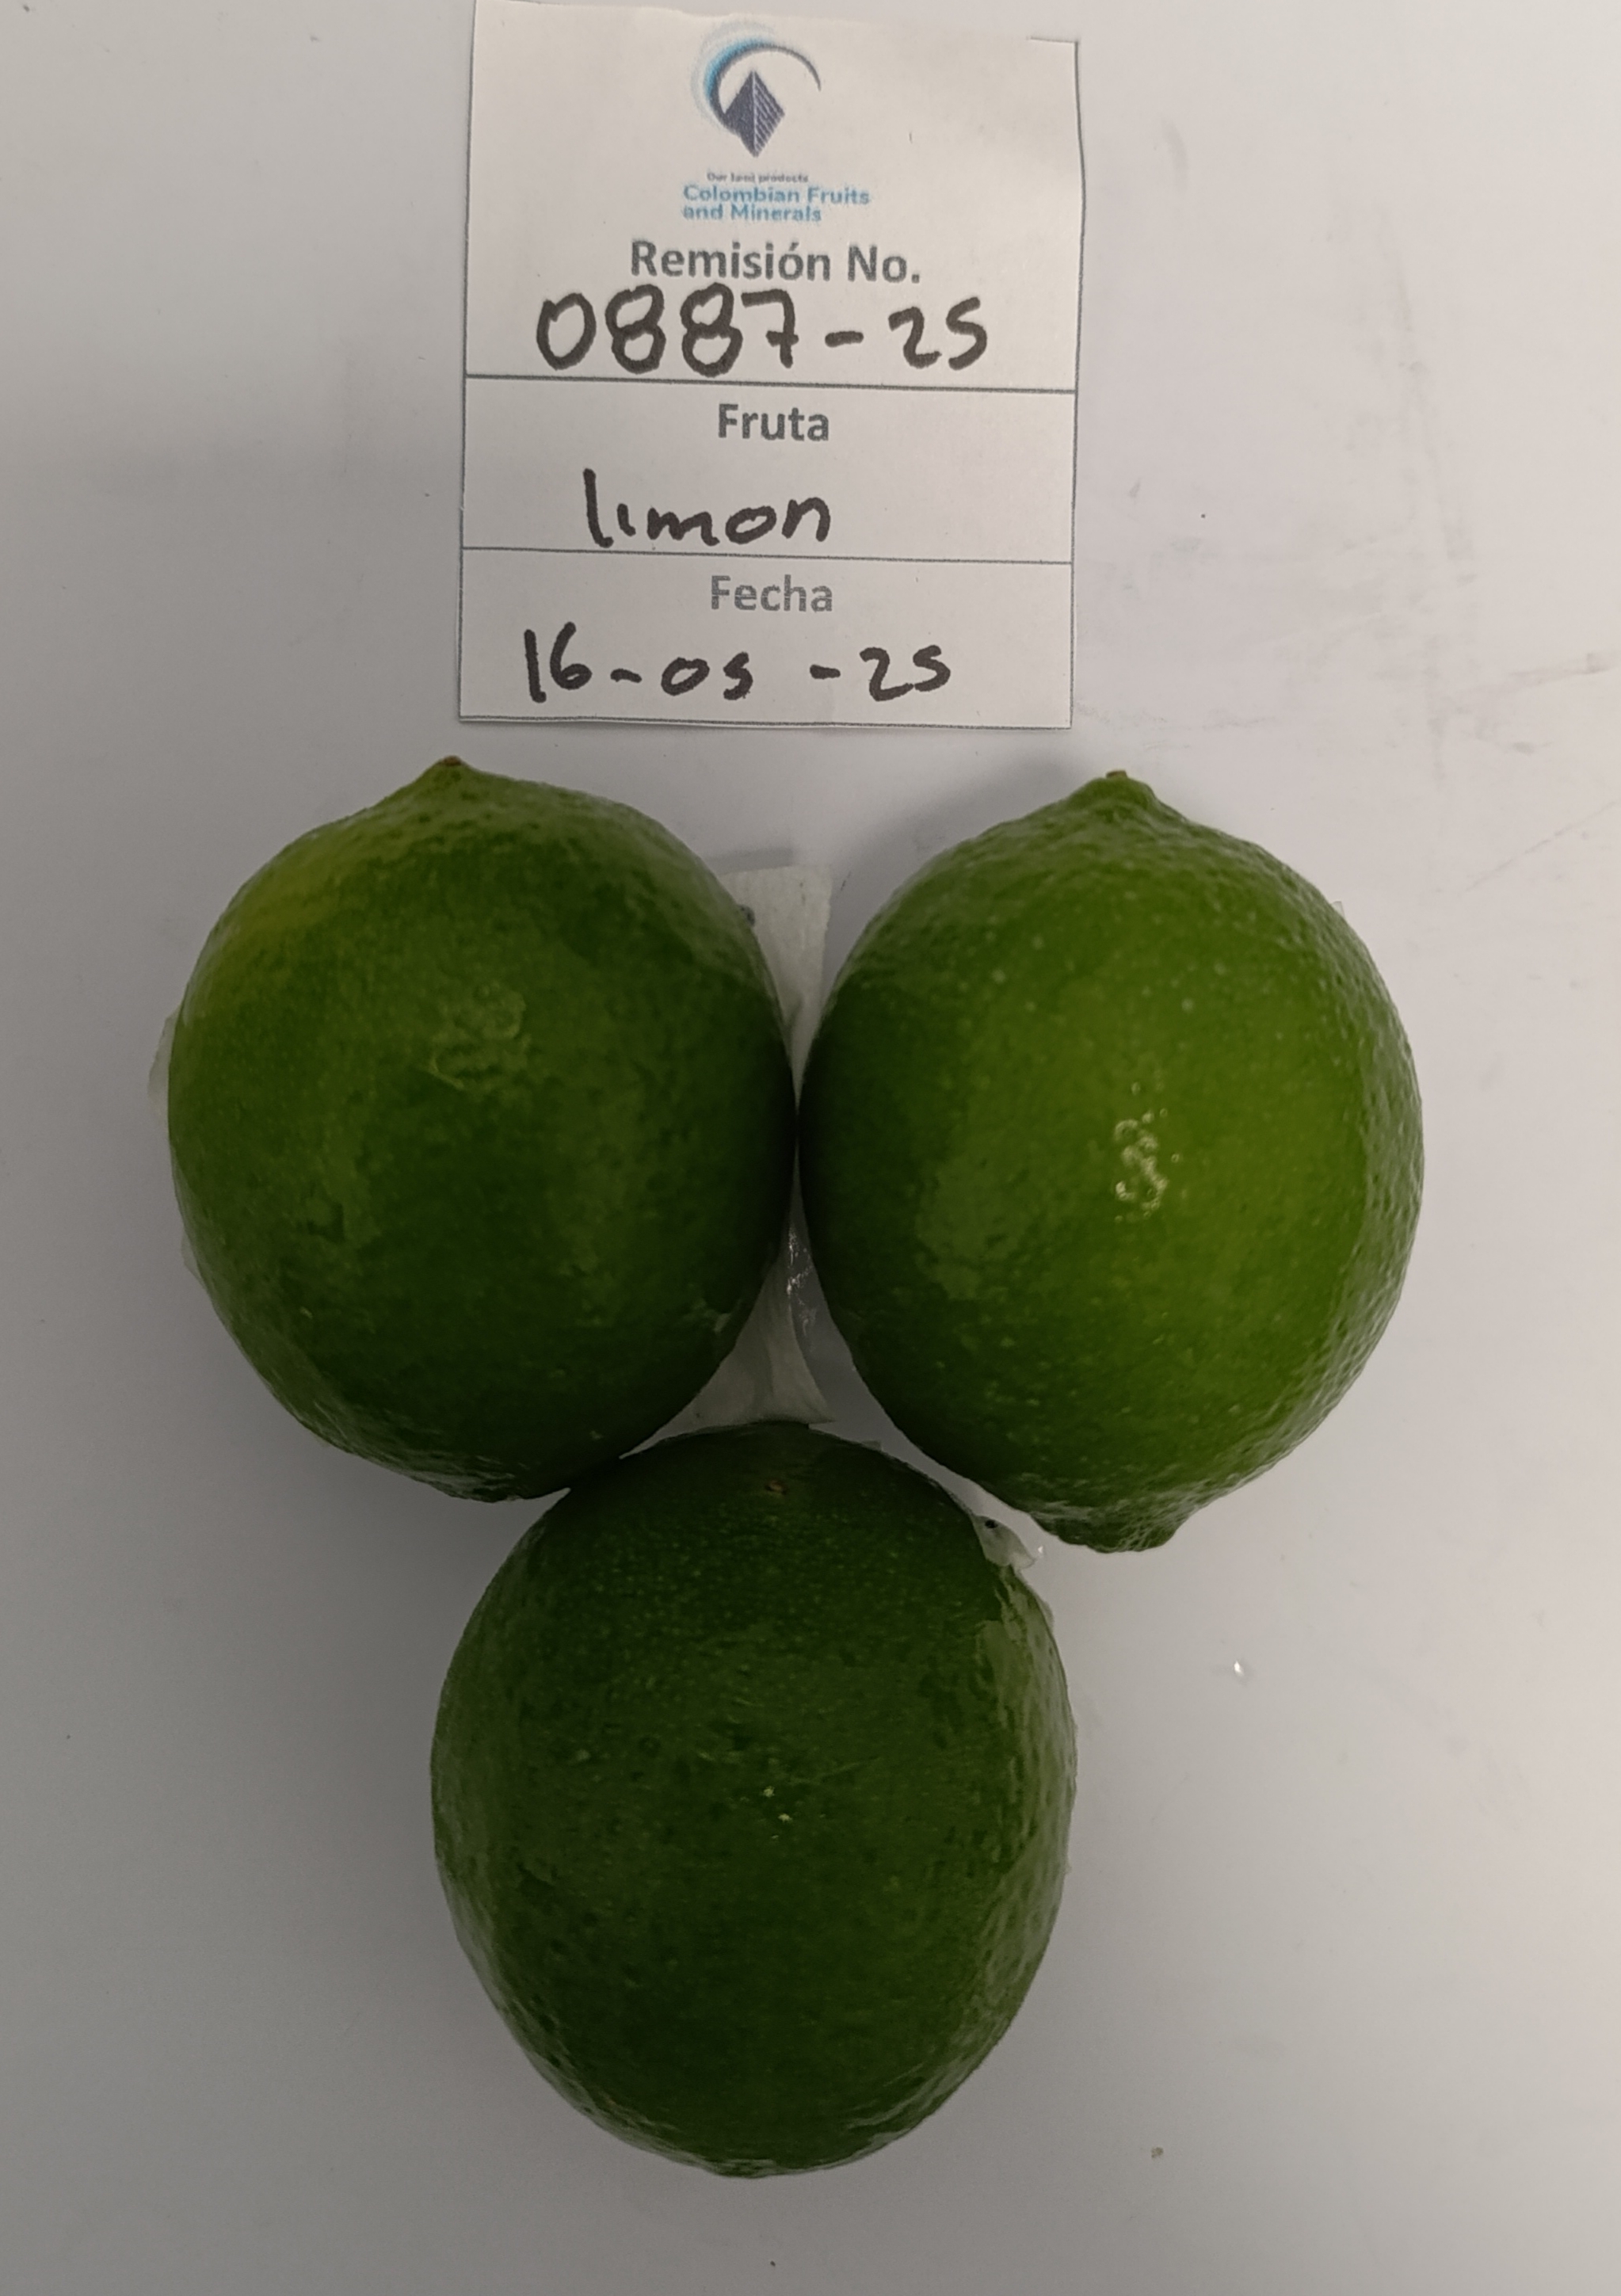 Our land products
Colombian Fruits
and Minerals
Remisión No.
0887-25
Fruta
limon
Fecha
16-05-25